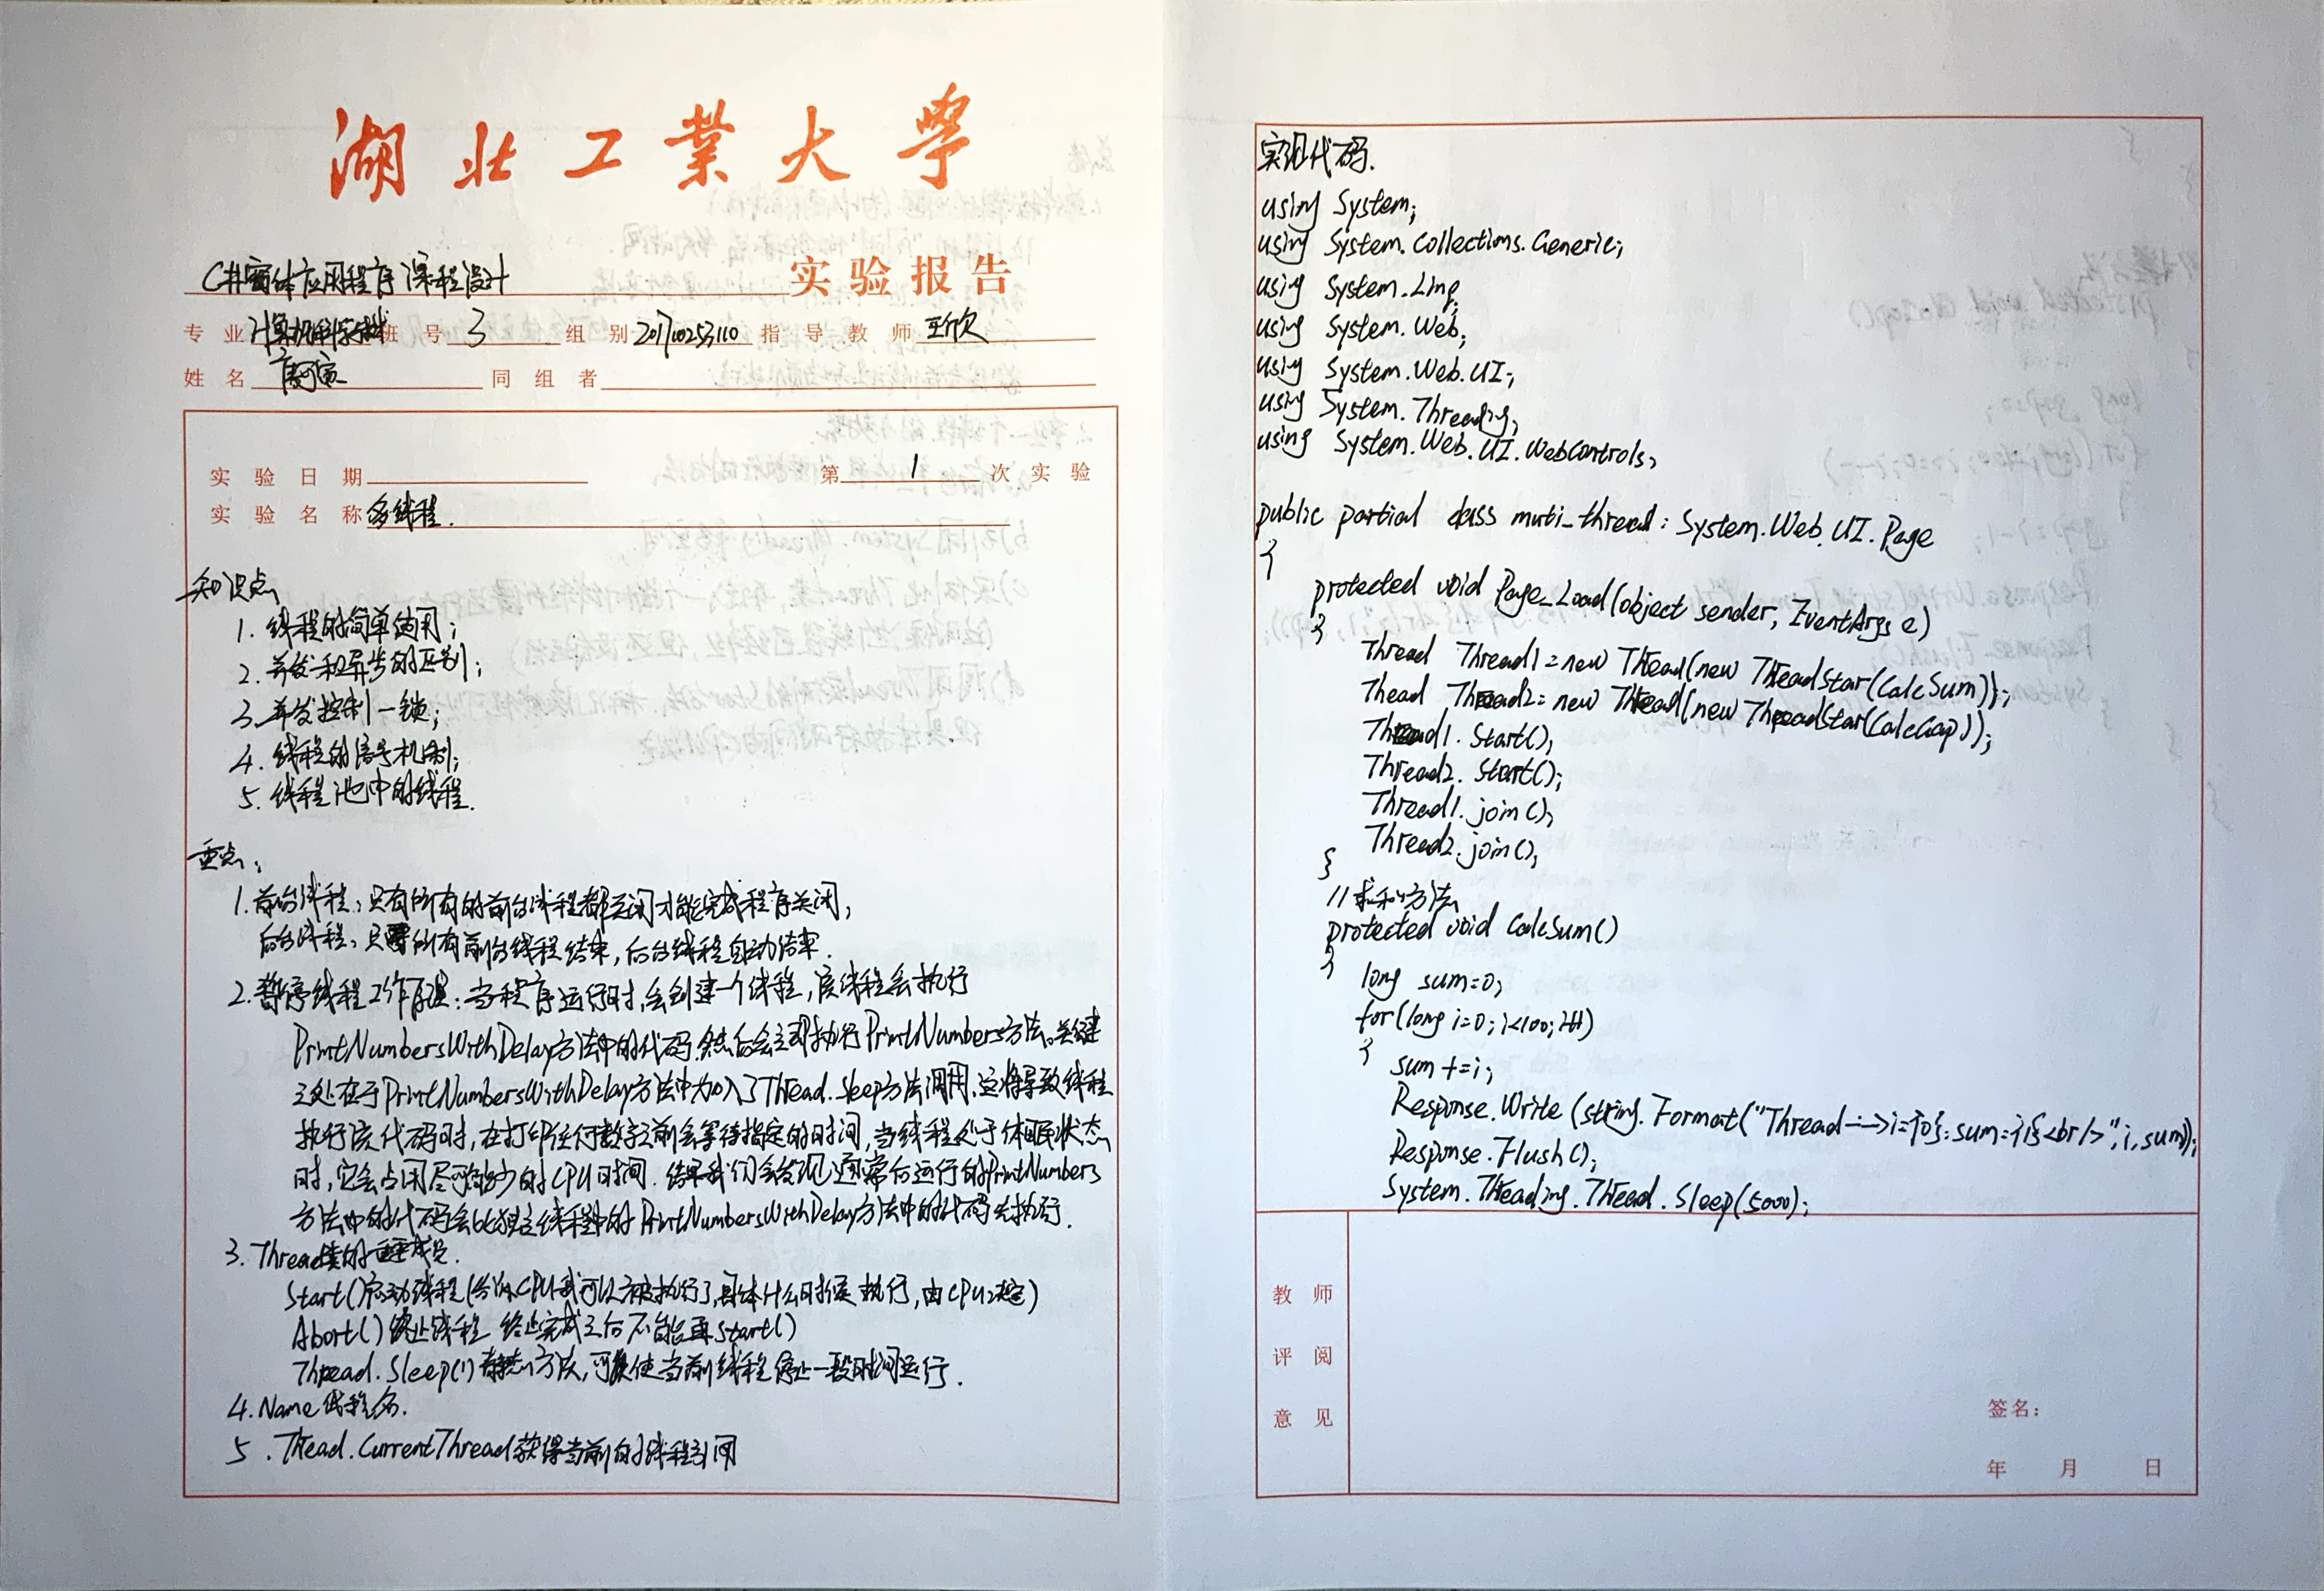 湖北工業大學
C#窗体应用程序课程设计 实验报告
专业 计算机科学与技术 班号 3 组别 2017100253110 指导教师 王欣
姓名 同组者
实验日期 第 1 次实验
实验名称 多线程.
知识点
1. 线程的简单使用;
2. 并发和异步的区别;
3. 并发控制—锁;
4. 线程的信号机制;
5. 线程池中的线程.
重点:
1. 前台线程:只有所有的前台线程都关闭才能完成程序关闭;
后台线程:只要所有前台线程结束,后台线程自动结束.
2. 暂停线程工作原理:当程序运行时,会创建一个线程,该线程会执行
PrintNumbersWithDelay方法中的代码.然后会立即执行PrintNumbers方法。关键
之处在于PrintNumbersWithDelay方法中加入了Thread.Sleep方法调用.这将导致线程
执行该代码时,在打印任何数字之前会等待指定的时间,当线程处于休眠状态
时,它会占用尽可能少的CPU时间.结果我们会发现通常后运行的PrintNumbers
方法中的代码会比独立线程中的PrintNumbersWithDelay方法中的代码先执行.
3. Thread类的重要成员.
Start()启动线程(告诉CPU我可以被执行了,具体什么时候执行,由CPU决定)
Abort()终止线程 终止完成之后不能再Start()
Thread.Sleep(1)静态方法,可以使当前线程停止一段时间运行.
4. Name线程名.
5. Thread.CurrentThread获得当前的线程引用
实现代码.
using System;
using System.Collections.Generic;
using System.Linq;
using System.Web;
using System.Web.UI;
using System.Threading;
using System.Web.UI.WebControls;
public partial class muti_thread: System.Web.UI.Page
{
protected void Page_Load(object sender, EventArgs e)
{
Thread Thread1=new Thread(new ThreadStar(CalcSum));
Thead Thread2=new Thread(new ThreadStar(CalcGap));
Thread1.Start();
Thread2.Start();
Thread1.join();
Thread2.join();
}
//求和方法
protected void CalcSum()
{
long sum=0;
for(long i=0;i<100;i++)
{
sum+=i;
Response.Write(string.Format("Thread-->i={0}:sum={1}<br/>",i,sum));
Response.Flush();
System.Threading.Thread.Sleep(5000);
教师
评阅
意见
签名:
年 月 日